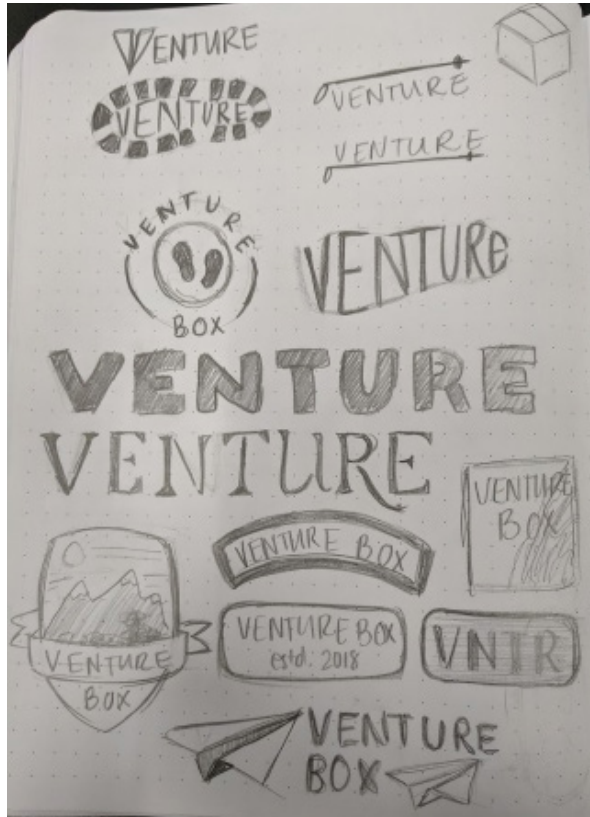 VENTURE
VENTURE
VENTURE
VENTURE
VENTURE
BOX
VENTURE
VENTURE
VENTURE
VENTURE
BOX
VENTURE BOX
VENTURE BOX
estd. 2018
VNTR
VENTURE
BOX
VENTURE
BOX